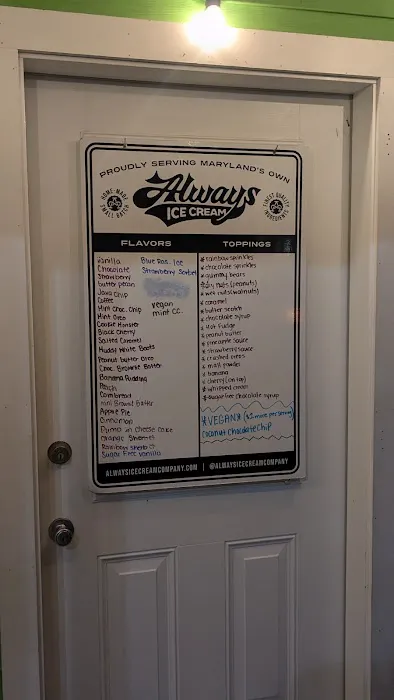 PROUDLY SERVING MARYLAND'S OWN
HOME-MADE SMALL BATCH
Always
ICE CREAM
FINEST QUALITY INGREDIENTS
FLAVORS
Vanilla
Chocolate
Strawberry
butter pecan
Java Chip
Coffee
Mint Choc. Chip
Mint Oreo
Cookie Monster
Black Cherry
Salted Caramel
Muddy White Boots
Peanut butter Oreo
Choc. Brownie Batter
Banana Pudding
Peach
Cornbread
Apple Pie
Cinnamon
Orange Sherbet
Rainbow Sherbet
Sugar Free Vanilla
Blue Ras. Ice
Strawberry Sorbet
vegan
mint CC.
TOPPINGS
* rainbow sprinkles
* chocolate sprinkles
* gummy bears
* dry nuts (peanuts)
* wet nuts (walnuts)
* caramel
* butter scotch
* chocolate syrup
* Hot Fudge
* peanut butter
* pineapple sauce
* strawberry sauce
* crushed oreos
* malt powder
* banana
* cherry (on top)
* whipped cream
* sugar free chocolate syrup
*VEGAN*
Coconut Chocolate Chip
ALWAYSICECREAMCOMPANY.COM | @ALWAYSICECREAMCOMPANY